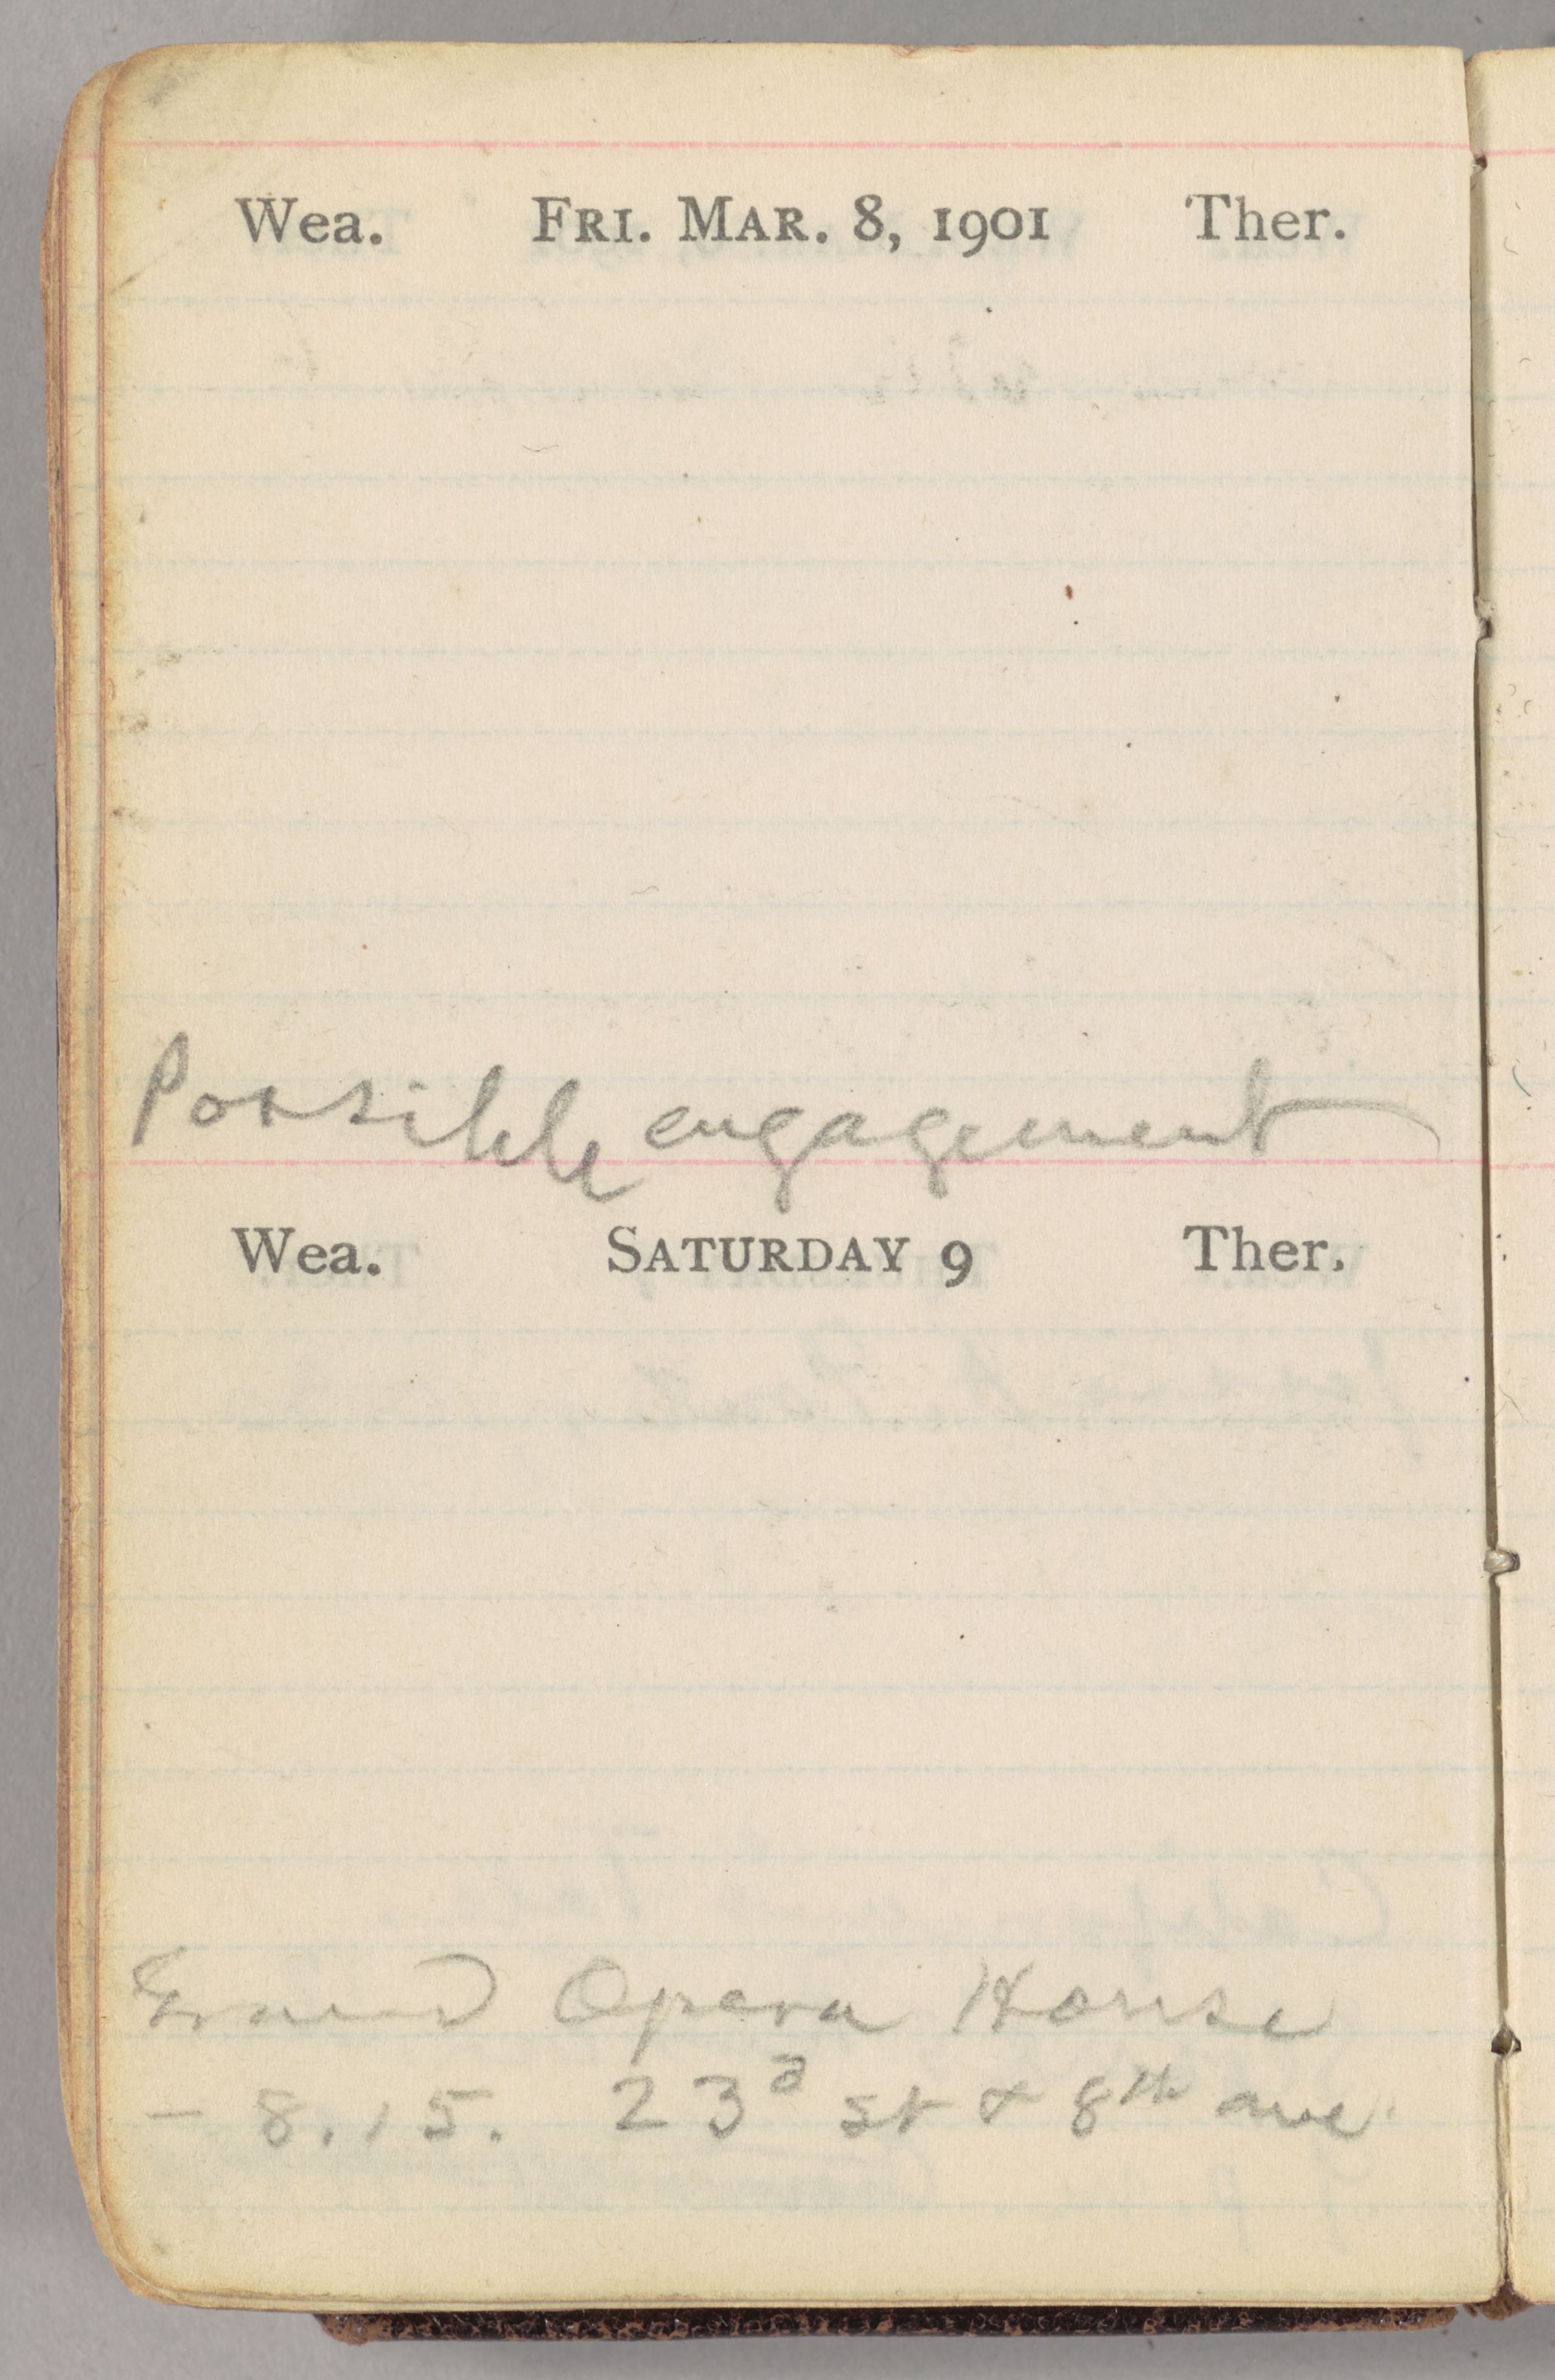 Wea. FRI. MAR. 8, 1901 Ther.
Possible engagement
Wea. SATURDAY 9 Ther.
Grand Opera House
– 8.15. 23d st & 8th ave